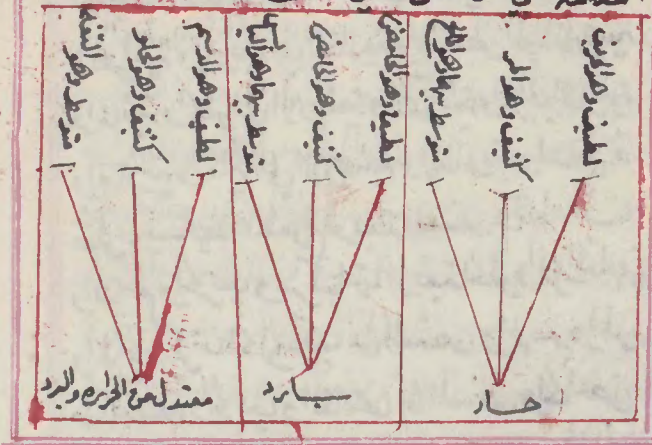 لطيف وهو الحريف
كثيف وهو المر
متوسط بينهما وهو المالح
حار
لطيف وهو الحامض
كثيف وهو
متوسط بينهما وهو
بارد
لطيف وهو الدسم
كثيف وهو الحلو
متوسط وهو التفه
معتدل من الحرارة والبرد